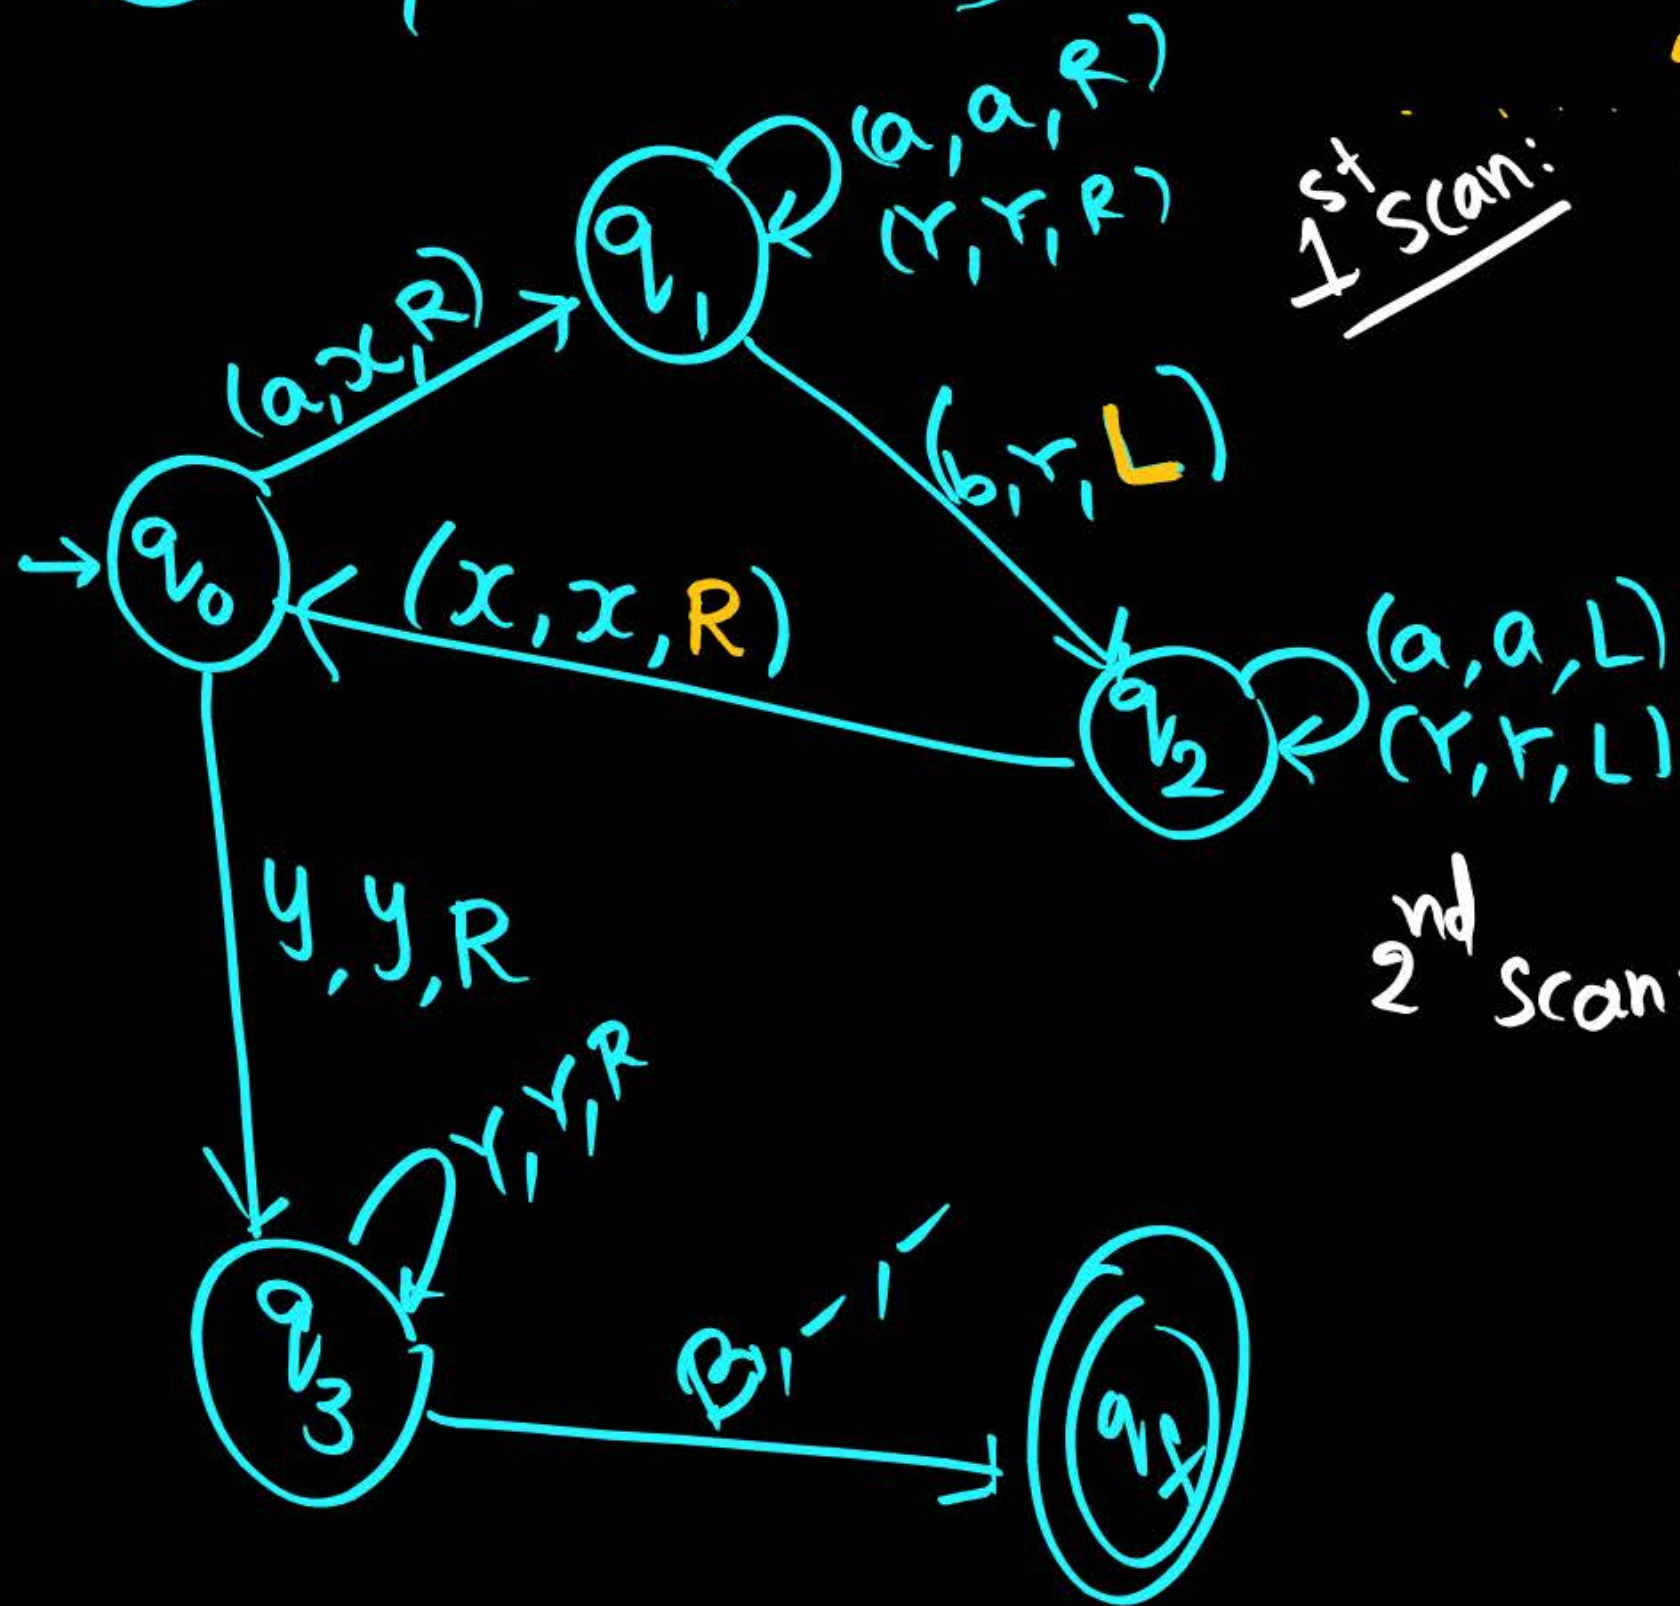 (a, a, R)
(Y, Y, R)
1st scan:
q1
(a, x, R)
(b, Y, L)
q0
(x, x, R)
(a, a, L)
(Y, Y, L)
q2
y, y, R
2nd scan:
Y, Y, R
q3
B, -, -
qf